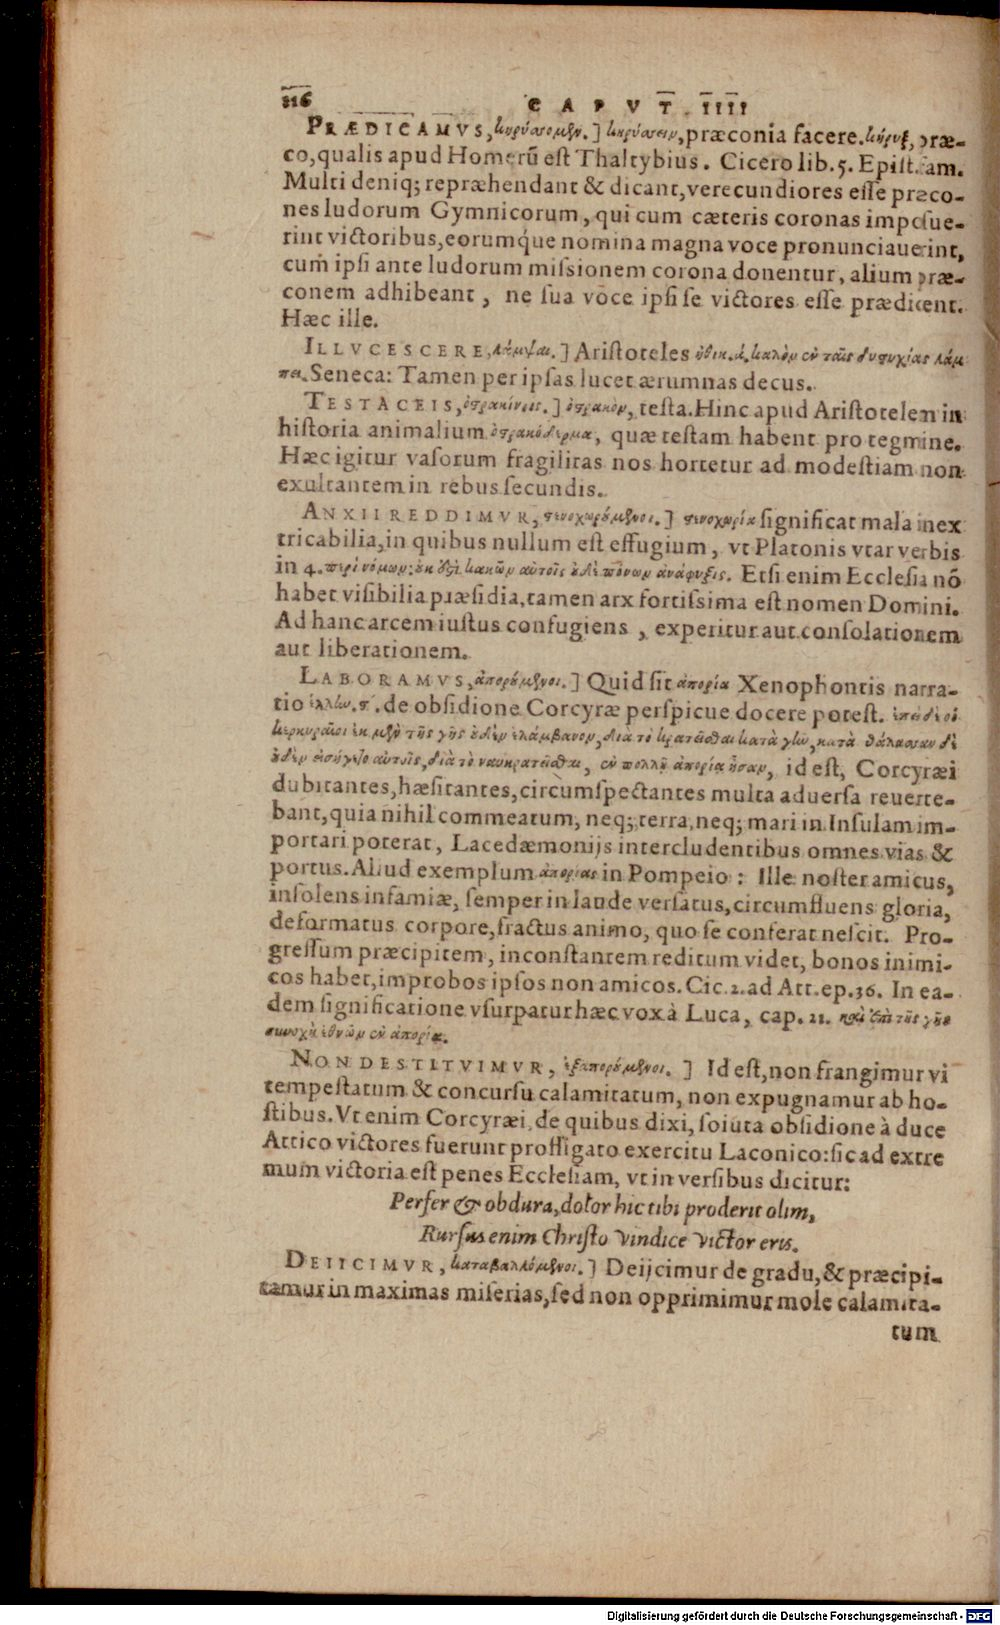 116 CAPVT. IIII
PRÆDICAMVS, κηρύσσομεν.] κηρύσσειν, præconia facere. κήρυξ, præ-
co, qualis apud Homerũ eſt Thaltybius. Cicero lib. 5. Epiſt. fam.
Multi deniq; repræhendant & dicant, verecundiores eſſe præco-
nes ludorum Gymnicorum, qui cum cæteris coronas impoſue-
rint victoribus, eorumq́ue nomina magna voce pronunciauerint,
cum ipſi ante ludorum miſsionem corona donentur, alium præ-
conem adhibeant, ne ſua voce ipſi ſe victores eſſe prædicent.
Hæc ille.
ILLVCESCERE, λάμψαι.] Ariſtoteles ἠθικ. ά. καλὸν ἐν ταῖς δυσυχίαις λάμ
πει. Seneca: Tamen per ipſas lucet ærumnas decus.
TESTACEIS, ὀστρακίνοις.] ὄστρακον, teſta. Hinc apud Ariſtotelem in
hiſtoria animalium ὀστρακόδερμα, quæ teſtam habent pro tegmine.
Hæc igitur vaſorum fragilitas nos hortetur ad modeſtiam non
exultantem in rebus ſecundis.
ANXII REDDIMVR, στενοχωρούμενοι.] στενοχωρία ſignificat mala inex
tricabilia, in quibus nullum eſt effugium, vt Platonis vtar verbis
in 4. περὶ νόμων: οὐκ ἔστι κακῶν αὐτοῖς οὐδὲ πόνων ἀνάψυξις. Etſi enim Eccleſia nõ
habet viſibilia præſidia, tamen arx fortiſsima eſt nomen Domini.
Ad hanc arcem iuſtus confugiens, experitur aut conſolationem
aut liberationem.
LABORAMVS, ἀπορούμενοι.] Quid ſit ἀπορία Xenophontis narra-
tio ἑλλην. ϛ. de obſidione Corcyræ perſpicue docere poteſt. ἐπεὶ δὲ οἱ
κερκυραῖοι ἐκ μὲν τῆς γῆς οὐδὲν ἐλάμβανον, διὰ τὸ κρατεῖσθαι κατὰ γῆν, κατὰ θάλασσαν δὲ
οὐδὲν εἰσήγετο αὐτοῖς, διὰ τὸ ναυκρατεῖσθαι, ἐν πολλῇ ἀπορία ἦσαν, id eſt, Corcyræi
dubitantes, hæſitantes, circumſpectantes multa aduerſa reuerte-
bant, quia nihil commeatum, neq; terra, neq; mari in Inſulam im-
portari poterat, Lacedæmonijs intercludentibus omnes vias &
portus. Aliud exemplum ἀπορίας in Pompeio: Ille noſter amicus,
inſolens infamiæ, ſemper in laude verſatus, circumfluens gloria,
deformatus corpore, fractus animo, quo ſe conferat neſcit. Pro-
greſſum præcipitem, inconſtantem reditum videt, bonos inimi-
cos habet, improbos ipſos non amicos. Cic. 2. ad Att. ep. 36. In ea-
dem ſignificatione vſurpatur hæc vox à Luca, cap. 21. καὶ ἐπὶ τῆς γῆς
συνοχὴ ἐθνῶν ἐν ἀπορίᾳ.
NON DESTITVIMVR, ἐξαπορούμενοι.] Id eſt, non frangimur vi
tempeſtatum & concurſu calamitatum, non expugnamur ab ho-
ſtibus. Vt enim Corcyræi, de quibus dixi, ſoluta obſidione à duce
Attico victores fuerunt profligato exercitu Laconico: ſic ad extre
mum victoria eſt penes Eccleſiam, vt in verſibus dicitur:
Perfer & obdura, dolor hic tibi proderit olim,
Rurſus enim Chriſto vindice victor eris.
DEIICIMVR, καταβαλλόμενοι.] Deijcimur de gradu, & præcipi-
tamur in maximas miſerias, ſed non opprimimur mole calamita-
tum
Digitalisierung gefördert durch die Deutsche Forschungsgemeinschaft - DFG